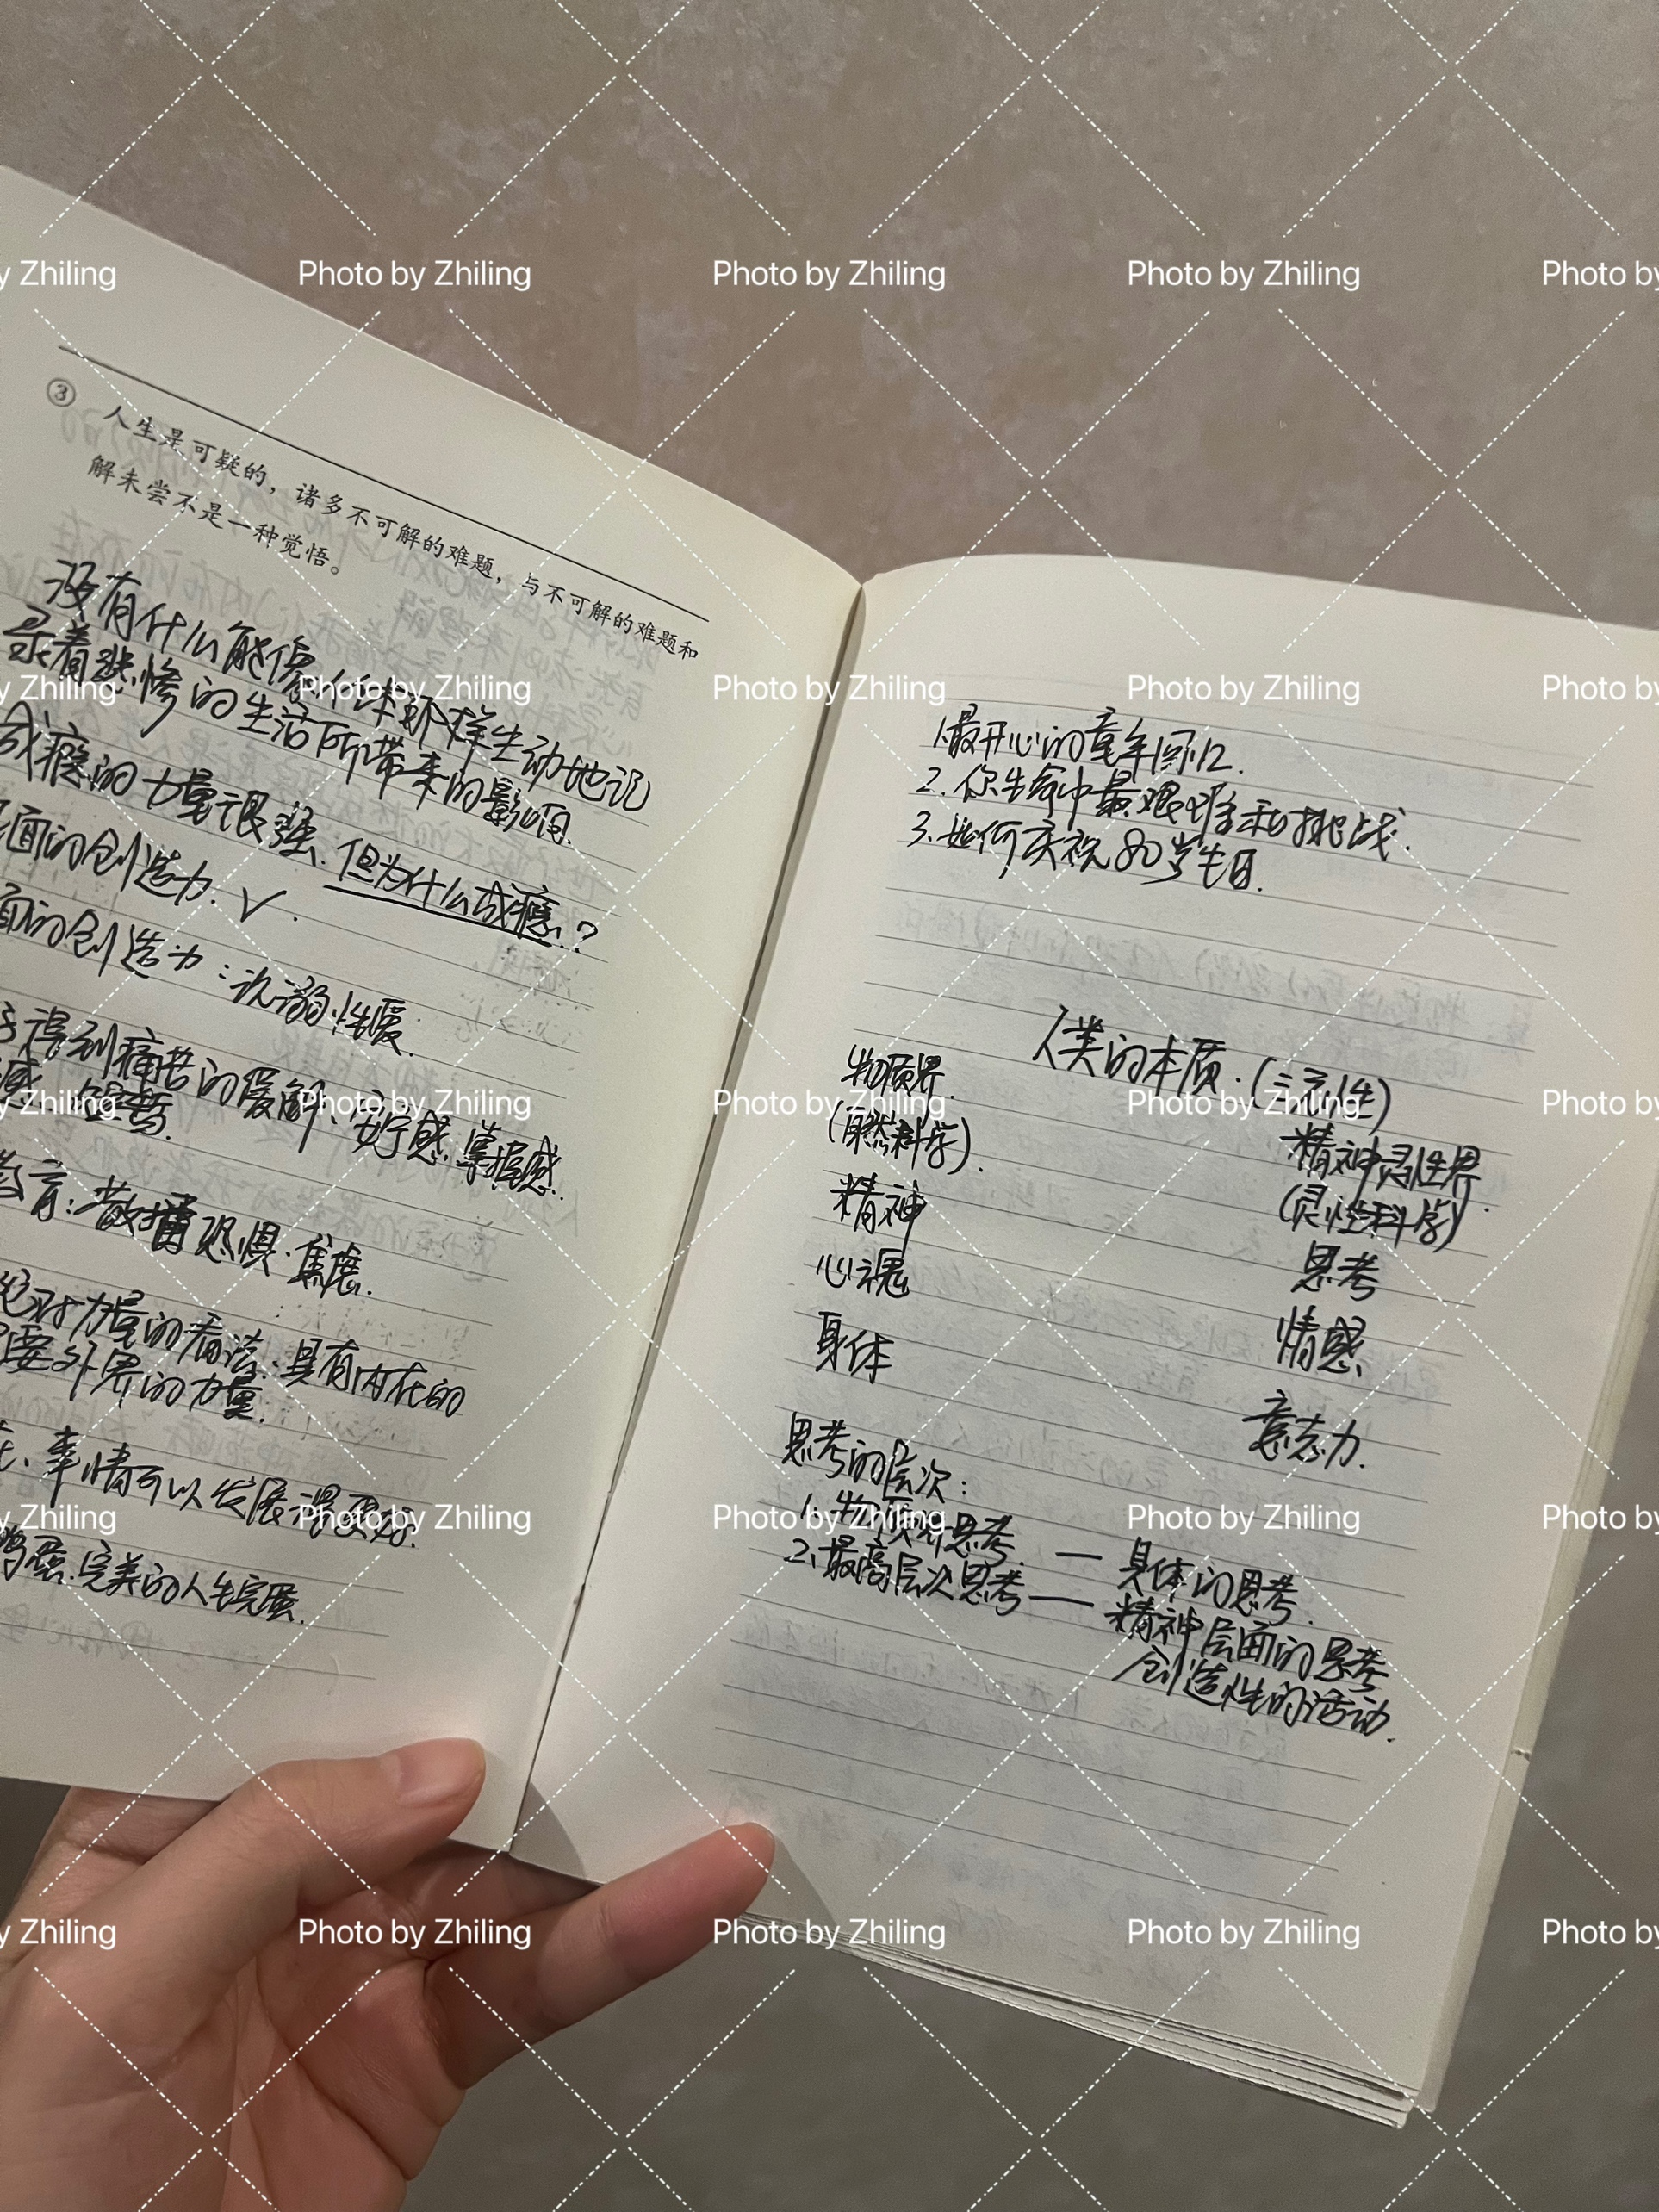 ③ 人生是可疑的，诸多不可解的难题，与不可解的难题和
解未尝不是一种觉悟。
没有什么能像个体那样生动地记
录着悲惨的生活所带来的影响.
成瘾的力量很强. 但为什么成瘾.?
面的创造力. ✓.
面的创造力：沉溺性瘾.
得到痛苦的缓解. 安宁感. 掌握感.
感.
教育：散播恐惧. 焦虑.
对力量的看法. 具有内在的
要外界的力量.
事情可以发展得更好.
完美的人生完蛋.
1.最开心的童年回忆.
2.你生命中最艰难和挑战.
3.如何庆祝80岁生日.
人类的本质.(三元性)
物质界. 精神灵性界.
(自然科学). (灵性科学)
精神 思考
心魂 情感
身体 意志力.
思考的层次：
1.物质对思考. — 具体的思考.
2.最高层次思考 — 精神层面的思考
创造性的活动.
Photo by Zhiling